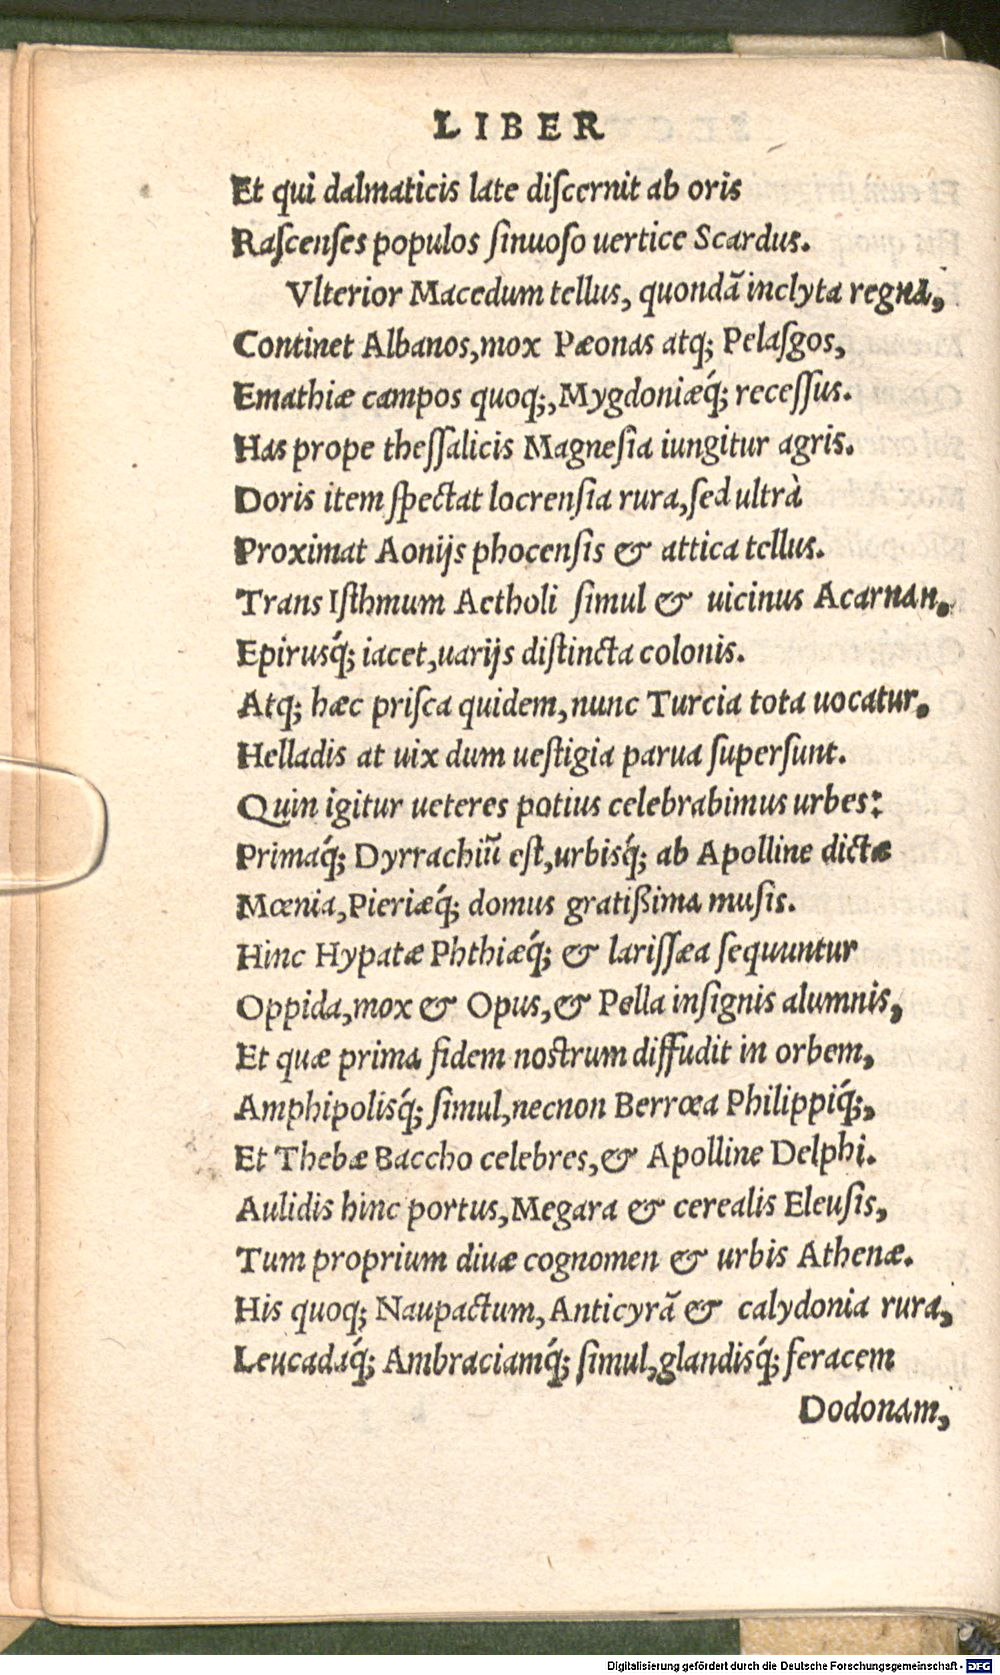 LIBER
Et qui dalmaticis late diſcernit ab oris
Raſcenſes populos ſinuoſo uertice Scardus.
Vlterior Macedum tellus, quondã inclyta regna,
Continet Albanos, mox Pæonas atq; Pelaſgos,
Emathiæ campos quoq;, Mygdoniæq́; receſſus.
Has prope theſſalicis Magneſia iungitur agris.
Doris item ſpectat locrenſia rura, ſed ultrà
Proximat Aonijs phocenſis & attica tellus.
Trans Iſthmum Aetholi ſimul & uicinus Acarnan.
Epirusq́; iacet, uarijs diſtincta colonis.
Atq; hæc priſca quidem, nunc Turcia tota uocatur.
Helladis at uix dum ueſtigia parua ſuperſunt.
Quin igitur ueteres potius celebrabimus urbes:
Primaq́; Dyrrachiũ eſt, urbisq́; ab Apolline dictæ
Mœnia, Pieriæq́; domus gratißima muſis.
Hinc Hypatæ Phthiæq́; & lariſſæa ſequuntur
Oppida, mox & Opus, & Pella inſignis alumnis,
Et quæ prima fidem noſtrum diffudit in orbem,
Amphipolisq́; ſimul, necnon Berrœa Philippiq́;,
Et Thebæ Baccho celebres, & Apolline Delphi.
Aulidis hinc portus, Megara & cerealis Eleuſis,
Tum proprium diuæ cognomen & urbis Athenæ.
His quoq; Naupactum, Anticyrã & calydonia rura,
Leucadaq́; Ambraciamq́; ſimul, glandisq́; feracem
Dodonam,
Digitalisierung gefördert durch die Deutsche Forschungsgemeinschaft - DFG